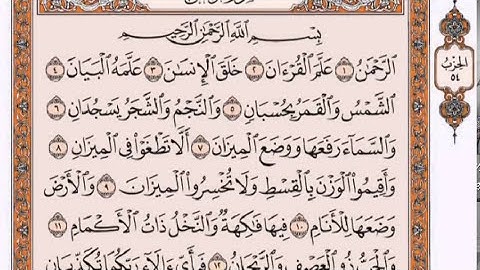 بِسْمِ اللَّهِ الرَّحْمَٰنِ الرَّحِيمِ
الرَّحْمَٰنُ ١ عَلَّمَ الْقُرْءَانَ ٢ خَلَقَ الْإِنسَٰنَ ٣ عَلَّمَهُ الْبَيَانَ ٤
الشَّمْسُ وَالْقَمَرُ بِحُسْبَانٍ ٥ وَالنَّجْمُ وَالشَّجَرُ يَسْجُدَانِ ٦
وَالسَّمَاءَ رَفَعَهَا وَوَضَعَ الْمِيزَانَ ٧ أَلَّا تَطْغَوْا فِي الْمِيزَانِ ٨
وَأَقِيمُوا الْوَزْنَ بِالْقِسْطِ وَلَا تُخْسِرُوا الْمِيزَانَ ٩ وَالْأَرْضَ
وَضَعَهَا لِلْأَنَامِ ١٠ فِيهَا فَٰكِهَةٌ وَالنَّخْلُ ذَاتُ الْأَكْمَامِ ١١
وَالْحَبُّ ذُو الْعَصْفِ وَالرَّيْحَانُ ١٢ فَبِأَيِّ ءَالَاءِ رَبِّكُمَا تُكَذِّبَانِ
الحزب
٥٤